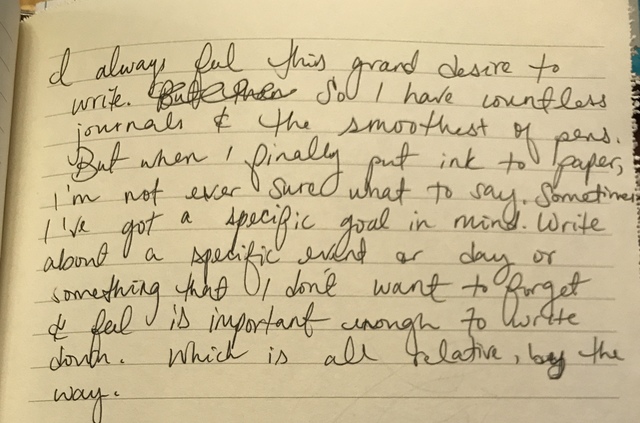 I always feel this grand desire to
write. But then So I have countless
journals & the smoothest of pens.
But when I finally put ink to paper,
I'm not ever sure what to say. Sometimes
I've got a specific goal in mind. Write
about a specific event or day or
something that I don't want to forget
& feel is important enough to write
down. Which is all relative, by the
way.